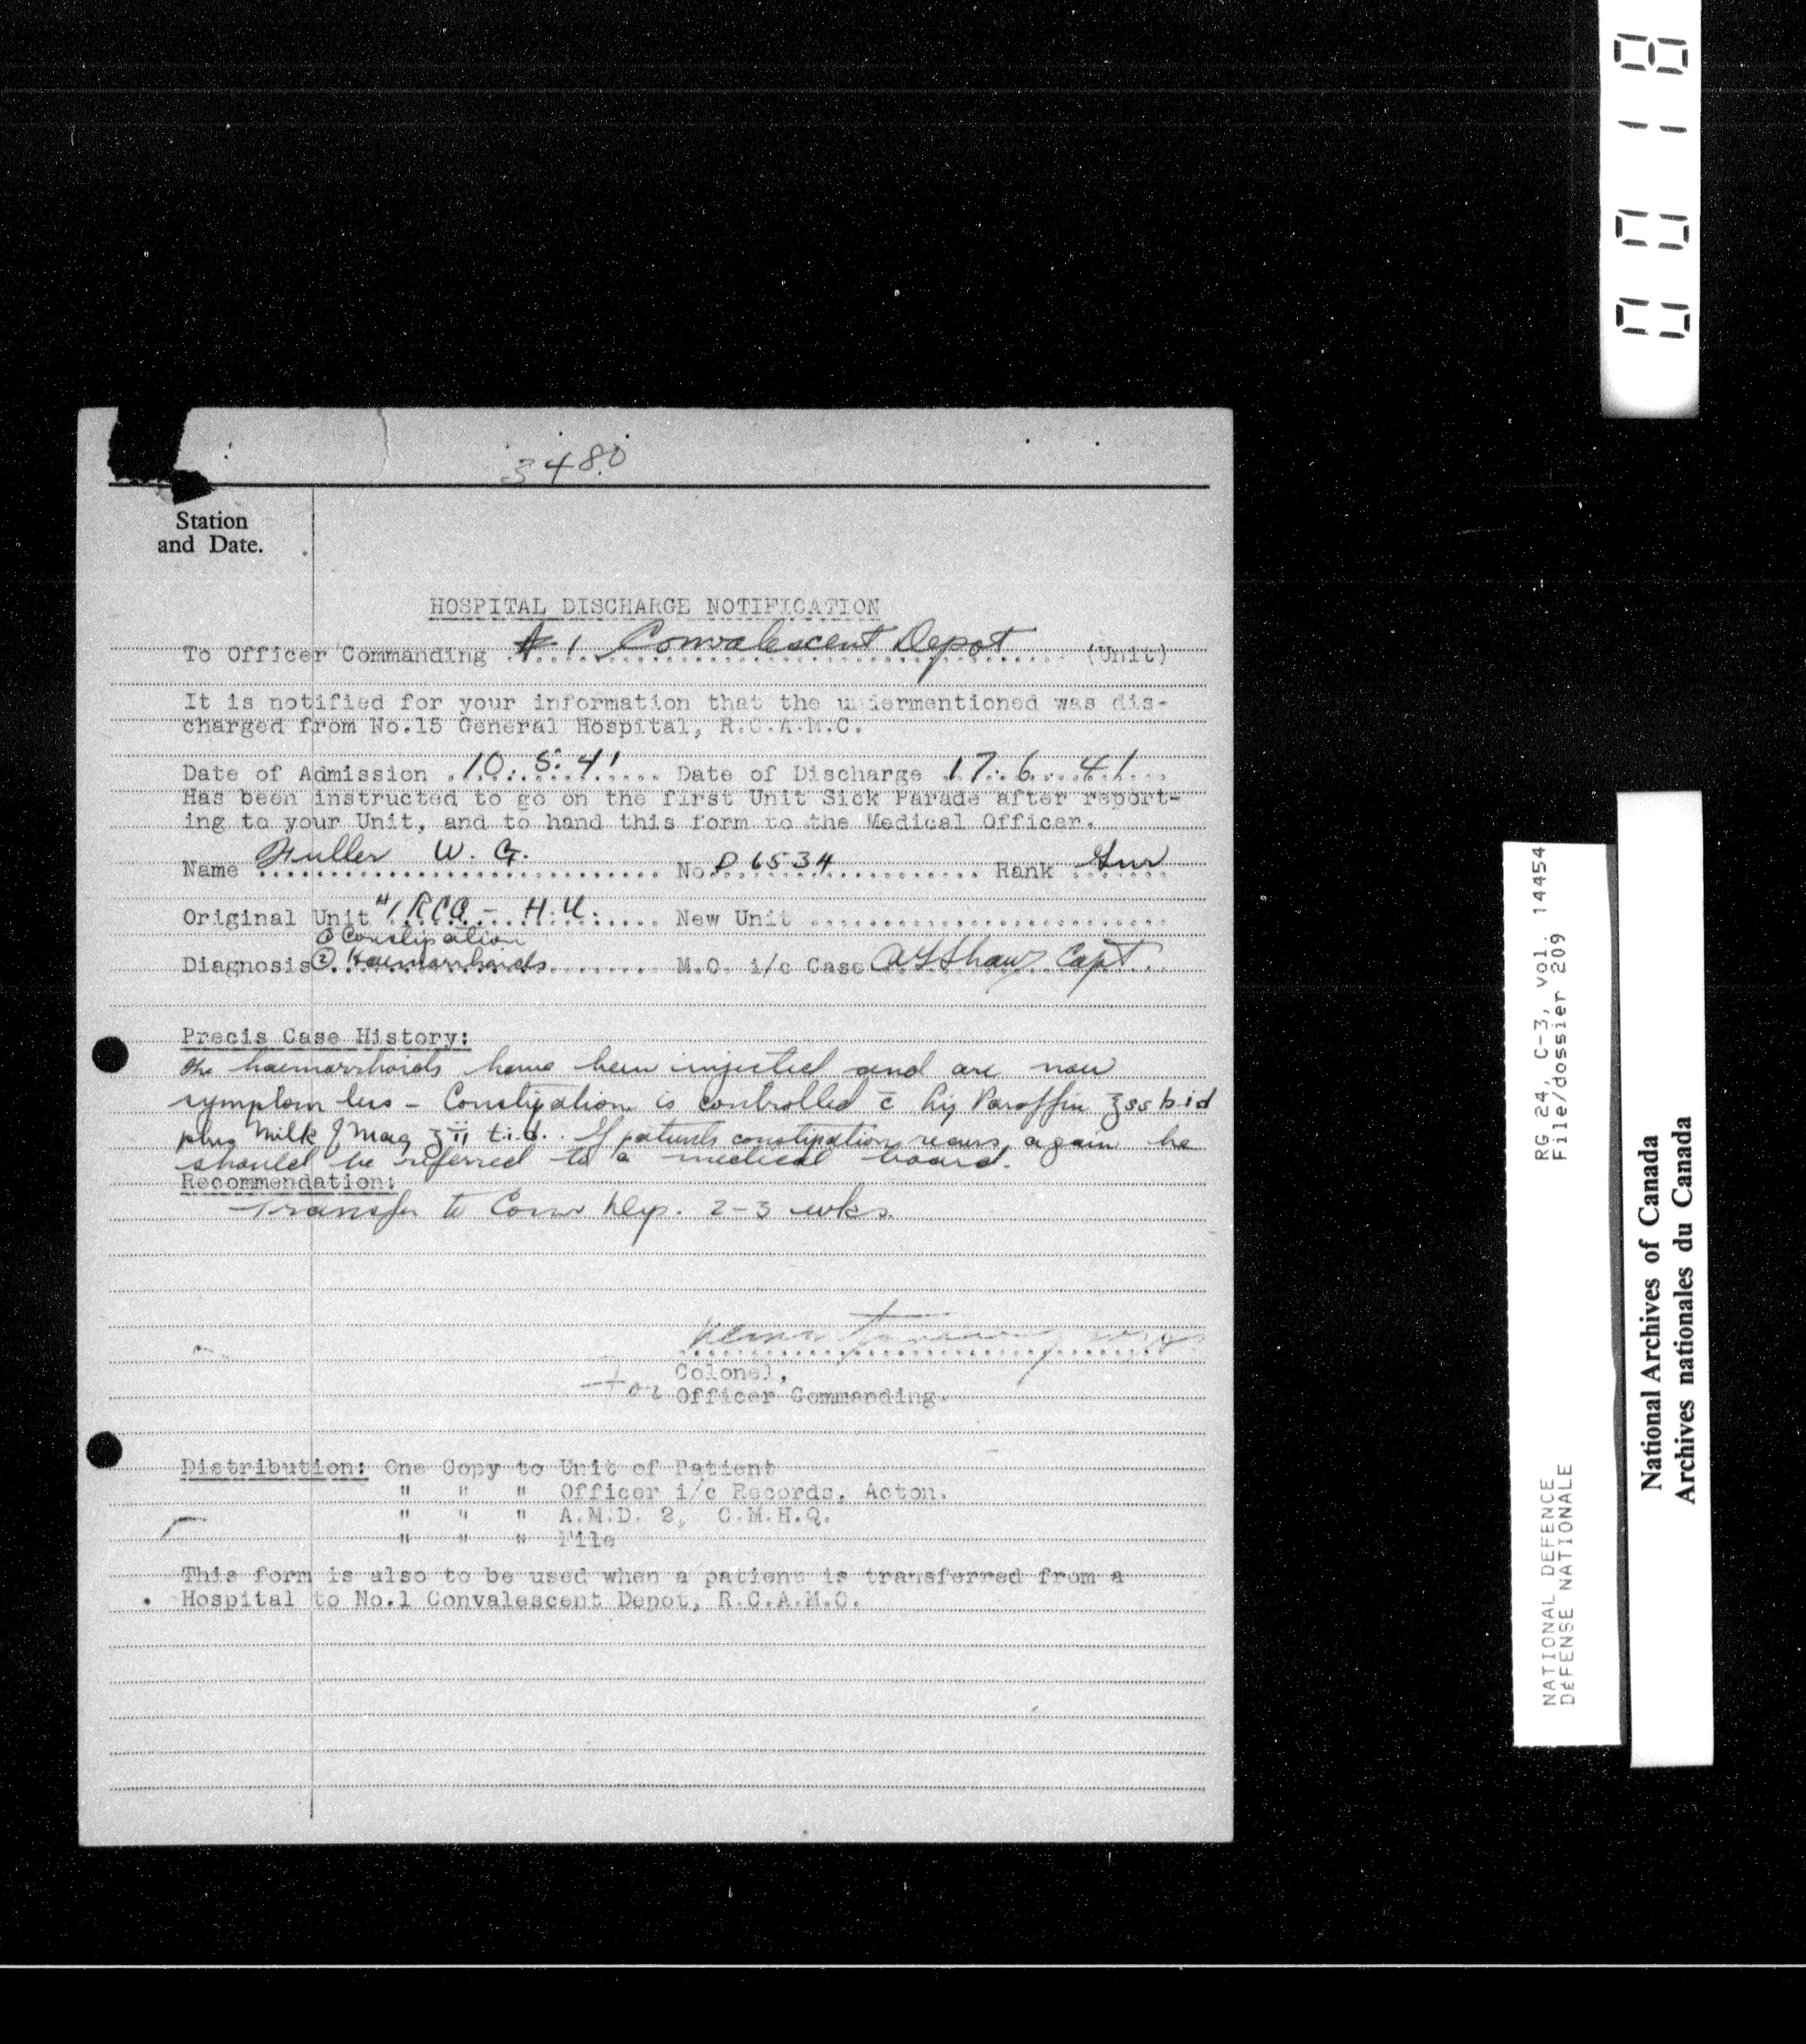 3480
Station
and Date.
HOSPITAL DISCHARGE NOTIFICATION
To Officer Commanding # 1 Convalescent Depot (Unit)
It is notified for your information that the undermentioned was dis-
charged from No.15 General Hospital, R.C.A.M.C.
Date of Admission 10. 5. 41 Date of Discharge 17. 6. 41
Has been instructed to go on the first Unit Sick Parade after report-
ing to your Unit, and to hand this form to the Medical Officer.
Name Fuller W. G. No. D 6534 Rank Gnr
Original Unit #1 RCA - H.U. New Unit
① Constipation
Diagnosis ② Haemorrhoids M.O. i/c Case Shaw Capt.
Precis Case History:
The haemorrhoids have been injected and are now
symptom less - Constipation is controlled c̄ liq Paraffin ʒss b.i.d
plus Milk of Mag ʒii t.i.d. If patients constipation recurs again he
should be referred to a medical board.
Recommendation:
Transfer to Conv Dep. 2-3 wks.
Colonel,
For Officer Commanding.
Distribution: One Copy to Unit of Patient
" " " Officer i/c Records, Acton.
" " " A.M.D. 2, C.M.H.Q.
" " " File
This form is also to be used when a patient is transferred from a
Hospital to No.1 Convalescent Depot, R.C.A.M.C.
0018
RG 24, C-3, vol. 14454
File/dossier 209
NATIONAL DEFENCE
DÉFENSE NATIONALE
National Archives of Canada
Archives nationales du Canada